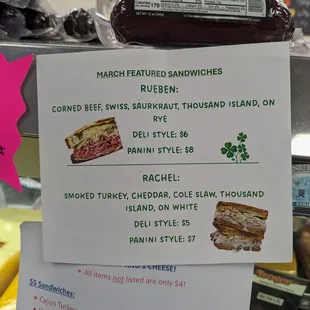 MARCH FEATURED SANDWICHES
RUEBEN:
CORNED BEEF, SWISS, SAURKRAUT, THOUSAND ISLAND, ON
RYE
DELI STYLE: $6
PANINI STYLE: $8
RACHEL:
SMOKED TURKEY, CHEDDAR, COLE SLAW, THOUSAND
ISLAND, ON WHITE
DELI STYLE: $5
PANINI STYLE: $7
AND 2 CHEESE!
• All items not listed are only $4!
$5 Sandwiches:
• Cajun Turkey